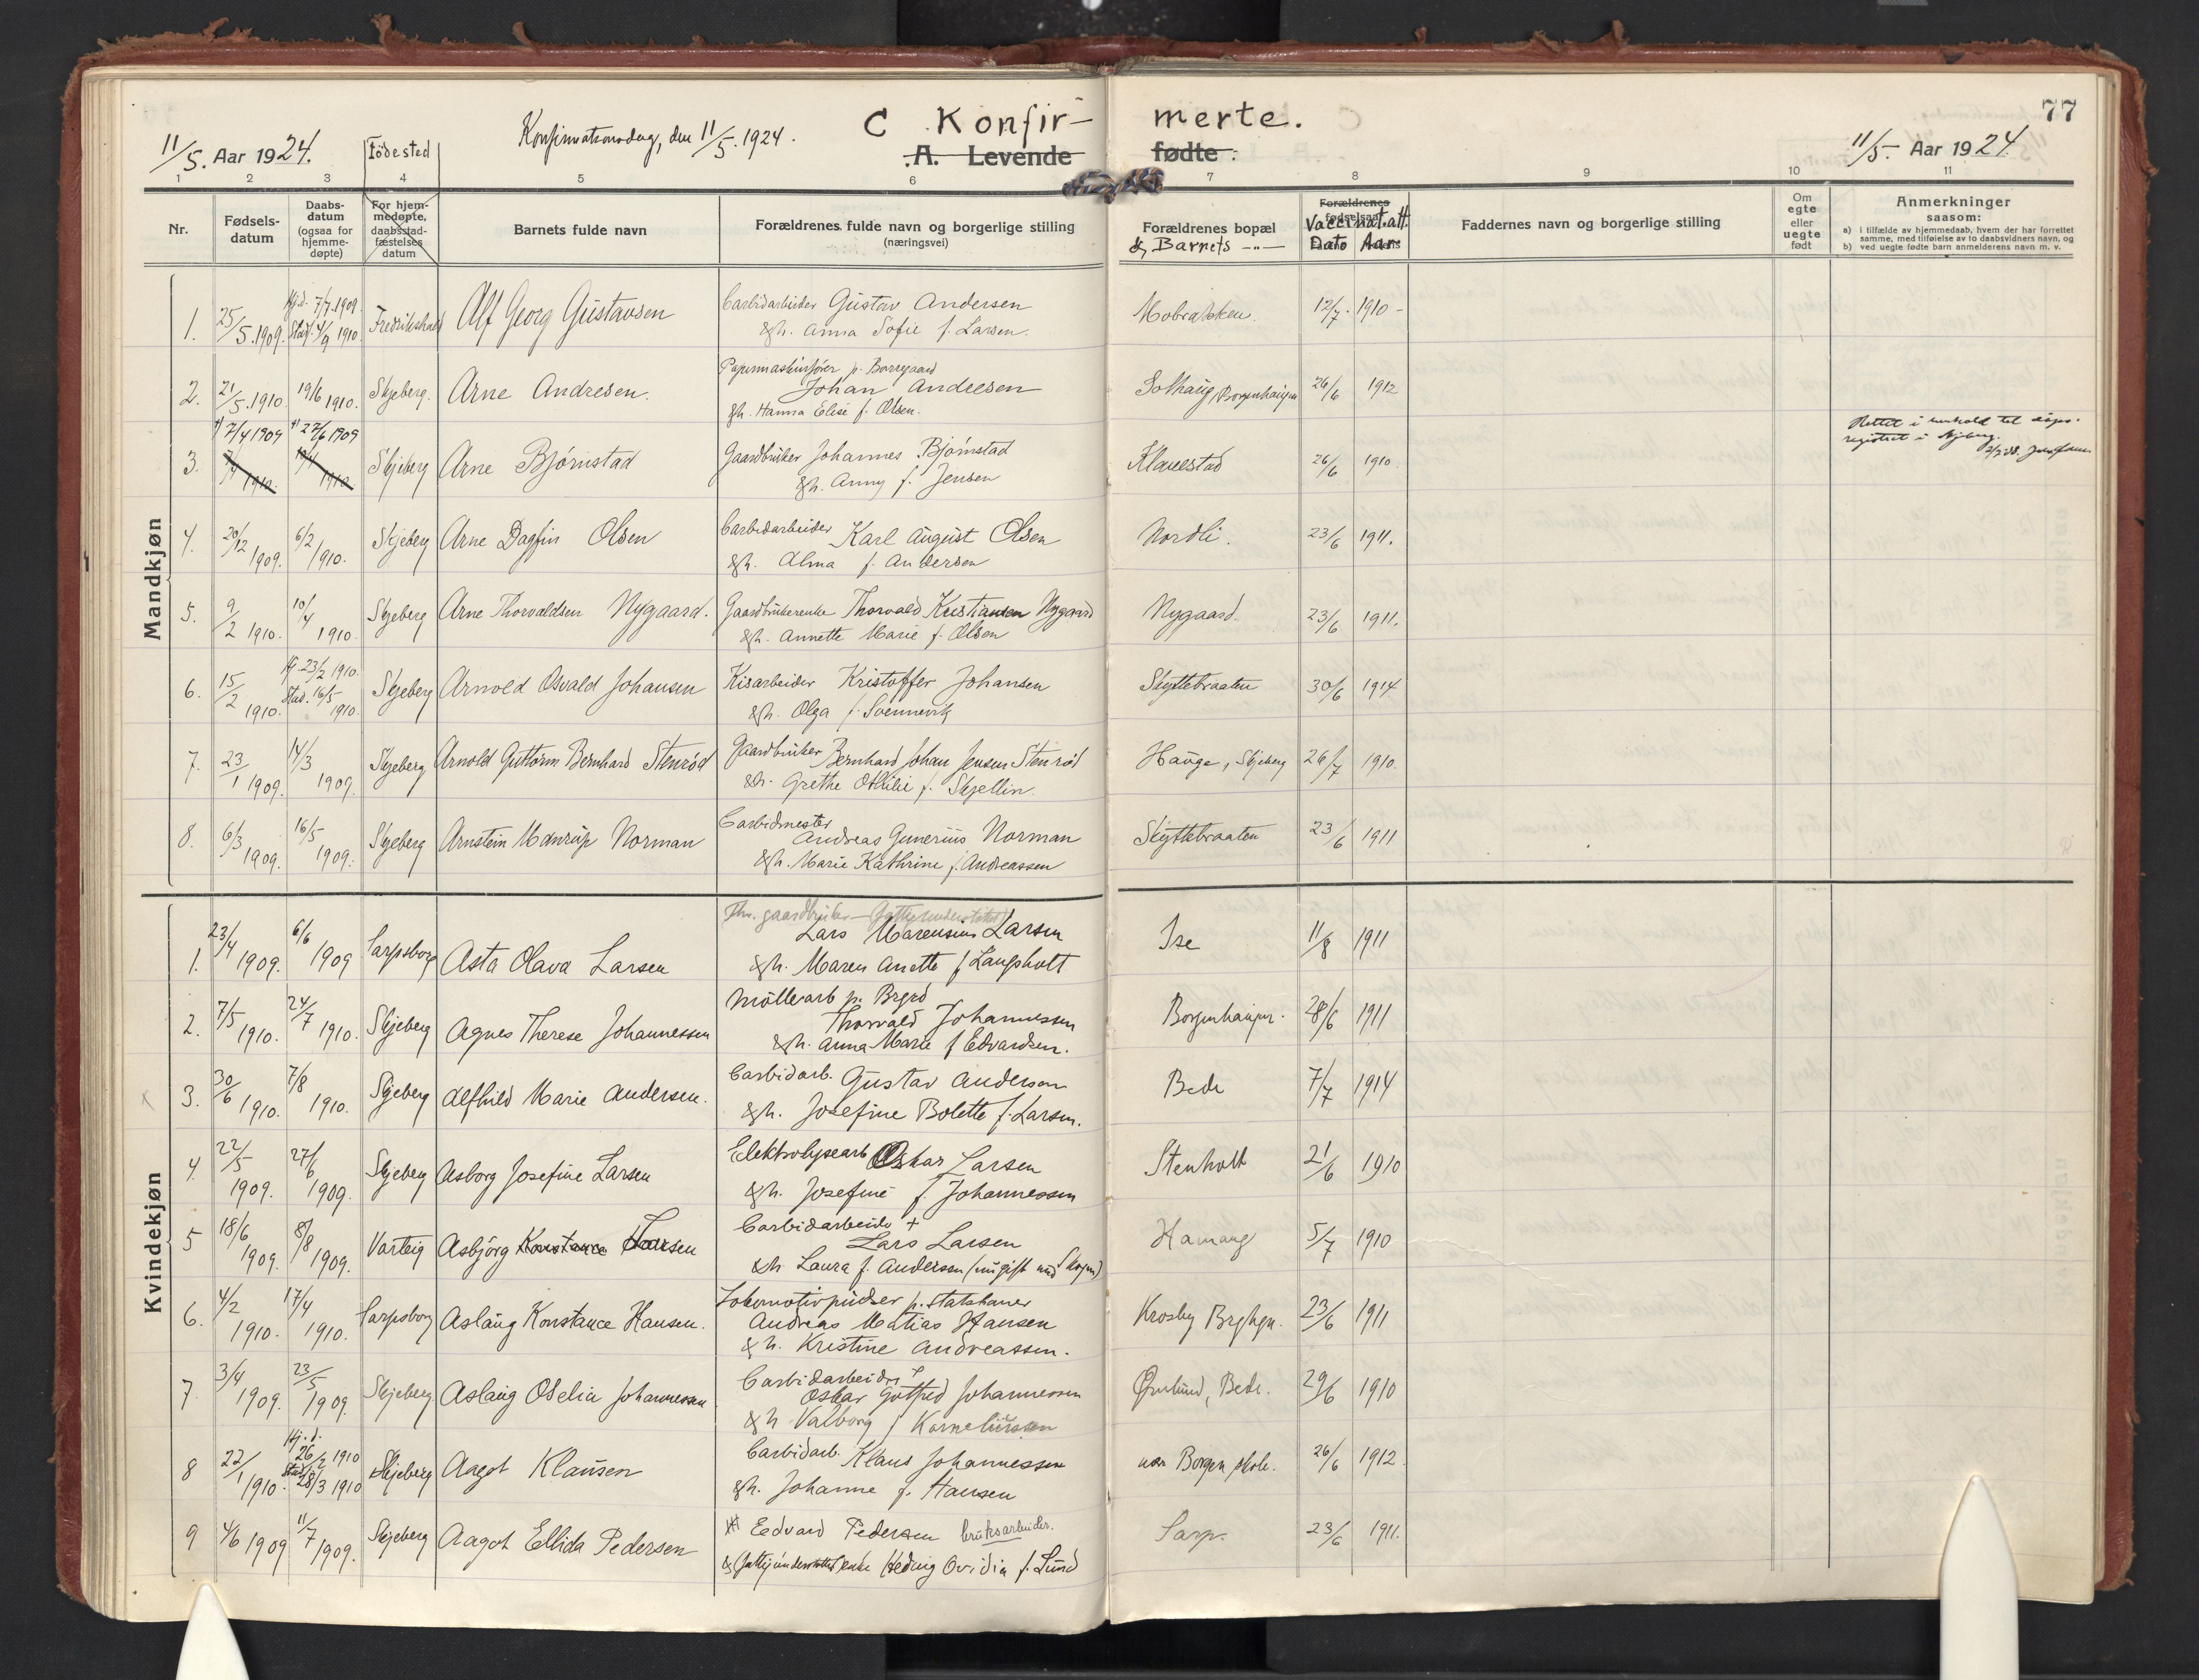 77
C Konfir- merte.
11/5. Aar 1924. Fødested Konfirmationsdag, den 11/5. 1924. A. Levende fødte. 11/5. Aar 1924.
1 2 3 4 5 6 7 8 9 10 11
Nr.
Fødsels-
datum
Daabs-
datum
(ogsaa for
hjemme-
døpte)
For hjem-
medøpte,
daabsstad-
fæstelses
datum
Barnets fulde navn
Forældrenes fulde navn og borgerlige stilling
(næringsvei)
Forældrenes bopæl
& Barnets -"-
Forældrenes
fødselsaar
Vaccinat.att.
Dato Aar
Faddernes navn og borgerlige stilling
Om
egte
eller
uegte
født
Anmerkninger
saasom:
a) i tilfælde av hjemmedaab, hvem der har forrettet
samme, med tilføielse av to daabsvidners navn, og
b) ved uegte fødte barn anmelderens navn m. v.
Mandkjøn
Hj.d. 7/7.1909
1. 25/5.1909. Stadf. 4/9 1910 Fredrikshald Alf Georg Gustavsen Carbidarbeider Gustav Andersen
&h. Anna Sofie f. Larsen. 12/7. 1910 -
Papirmaskinfører p. Borregaard
2. 21/5.1910. 19/6 1910. Skjeberg. Arne Andresen. Johan Andresen Solhaug, Borgenhaugen 26/6 1912
&h. Hanna Elise f. Olsen.
7/4 1909 27/6 1909
3. 7/4 1910. 1910. Skjeberg Arne Bjørnstad Gaardbruker Johannes Bjørnstad Klavestad 26/6 1910.
&h. Anny f. Jensen
Rettet i henhold til
registret i Skjeberg.
4. 20/12 1909. 6/2 1910. Skjeberg Arne Dagfin Olsen Carbidarbeider Karl August Olsen Nordli. 23/6 1911.
&h. Alma f. Andersen
5. 9/2 1910. 10/4 1910 Skjeberg Arne Thorvaldsen Nygaard. Gaardbrukerenke Thorvald Kristiansen Nygaard Nygaard. 23/6 1911.
&h. Annette Marie f. Olsen
Hj. 23/2 1910.
6. 15/2 1910. Stad. 16/5 1910. Skjeberg Arnold Osvald Johansen Kisarbeider Kristoffer Johansen Skyttebraaten 30/6 1914
&h. Olga f. Svennevik
7. 23/1 1909. 14/3 1909. Skjeberg Arnold Guttorm Bernhard Stenrød Gaardbruker Bernhard Johan Jensen Stenrød Hauge, Skjeberg 26/7 1910.
&h. Grethe Othilie f. Skjellin.
8. 6/3 1909. 16/5 1909. Skjeberg Arnstein Manrup Norman Carbidmester
Andreas Gunerius Norman Skyttebraaten 23/6 1911
&h. Marie Kathrine f. Andreassen
Kvindekjøn
1. 23/4 1909. 6/6 1909 Sarpsborg Asta Olava Larsen Lars Marensius Larsen Ise 11/8 1911
&h. Maren Anette f. Langholt
Møllearb p. Brgrd
2. 7/5 1910. 24/7 1910. Skjeberg Agnes Therese Johannessen Thorvald Johannessen Borgenhaugen. 28/6 1911
&h. Anna Marie f Edvardsen.
3. 30/6 1910. 7/8 1910. Skjeberg Alfhild Marie Andersen. Carbidarb. Gustav Andersen Bede 7/7 1914
&h. Josefine Bolette f. Larsen.
4. 22/5 1909. 27/6 1909. Skjeberg Asborg Josefine Larsen Elektrolysearb Oskar Larsen Stenholt 21/6 1910
&h. Josefine f. Johannessen
Carbidarbeider +
5 18/6 1909. 8/8 1909. Varteig Asbjörg Konstance Larsen Lars Larsen Hamang 5/7 1910
&h Laura f. Andersen (nu gift med Skogen)
Lokomotivpudser p. Statsbaner
6. 4/2 1910. 17/4 1910. Sarpsborg Aslaug Konstance Hansen. Andreas Matias Hansen Krosby Brghgn. 23/6 1911
&h. Kristine Andreassen.
Carbidarbeider
7. 3/4 1909. 23/5 1909. Skjeberg Aslaug Otelia Johannessen Oskar Gotfred Johannessen Ørnlund, Bede. 29/6 1910
&h Valborg f Korneliussen
Hj.d. 26/2 1910
8 22/1 1910. Stad. 28/3 1910 Skjeberg Aagot Klausen Carbidarb. Klaus Johannessen nær Borgen skole. 26/6 1912.
&h. Johanne f. Hansen
9 4/6 1909 11/7 1909. Skjeberg Aagot Ellida Pedersen Edvard Pedersen bruksarbeider. Sarp. 23/6 1911.
& (fattigunderstøttet) enke Hedvig Ovidia f. Lund